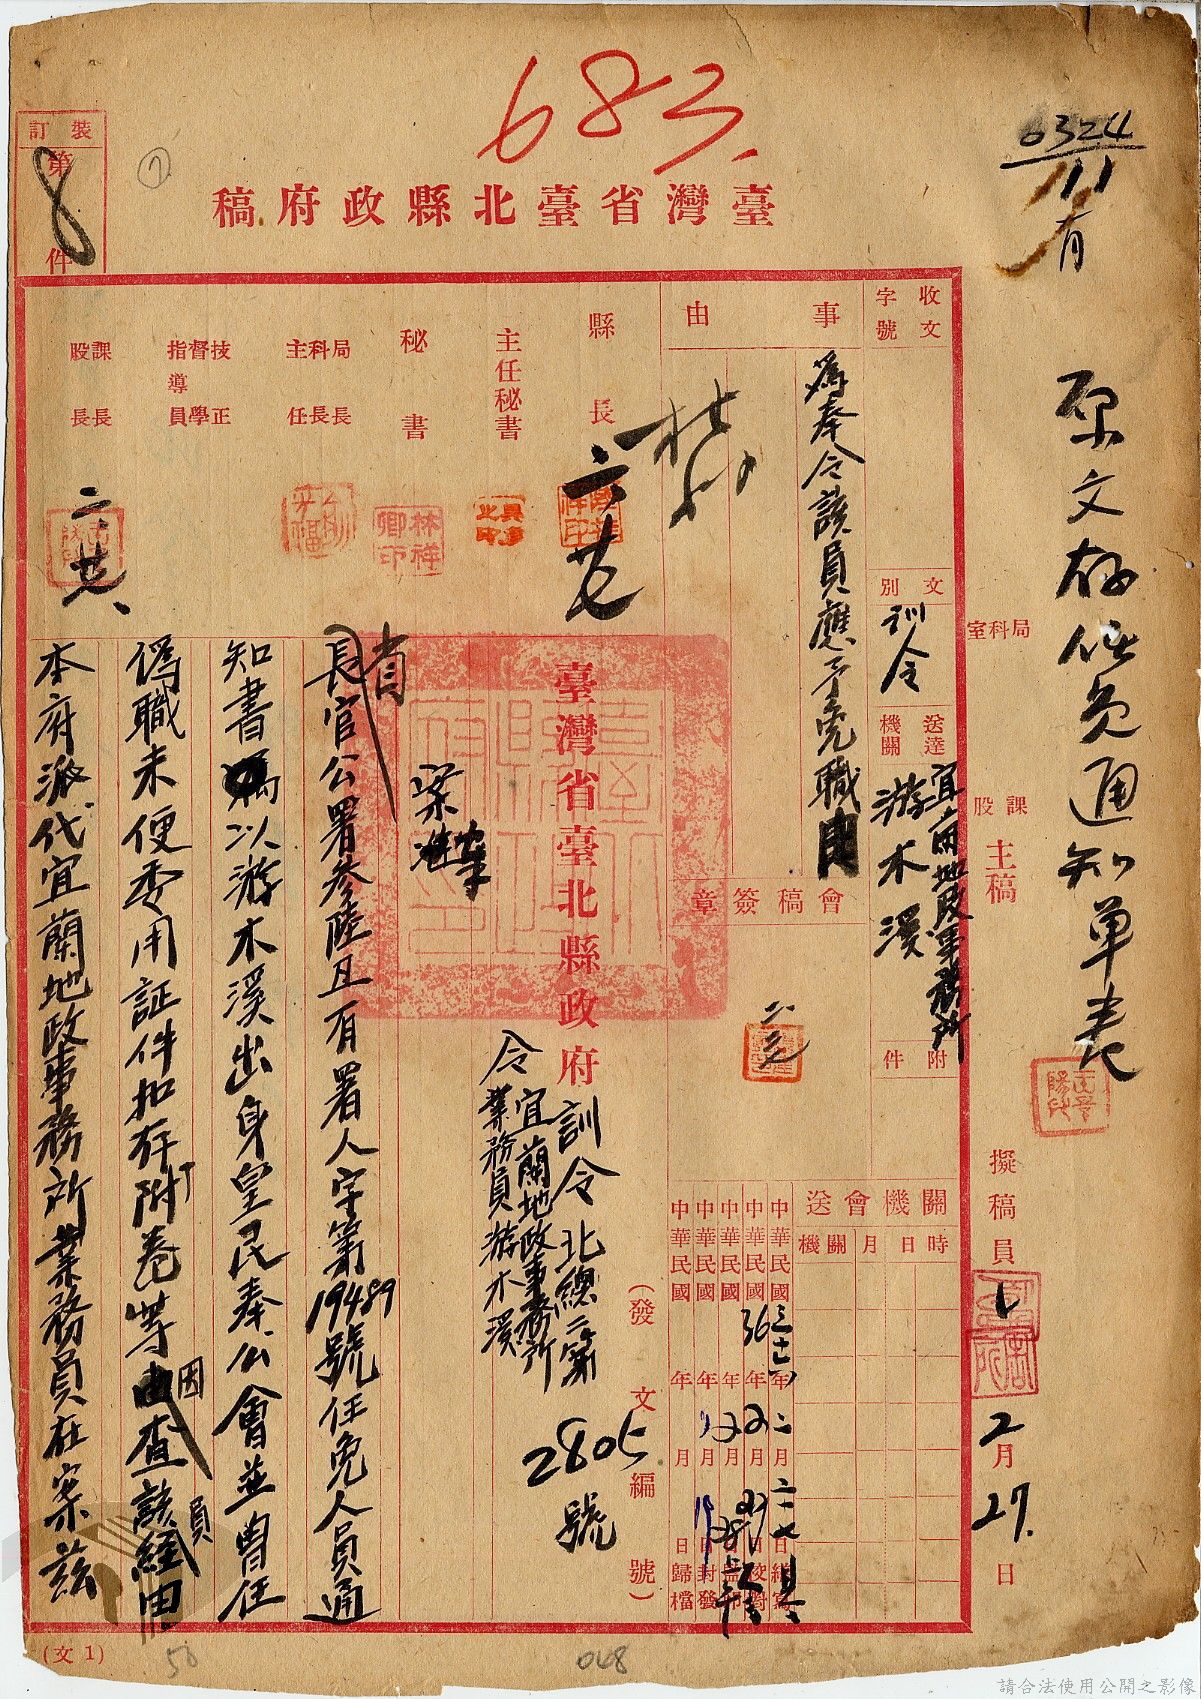 683.
6324
11
有
裝訂
第8件
⑦
臺灣省臺北縣政府稿
原文存任免通知單表
局科室
課股
主稿
擬稿員
2月27日
收文
字號
文別
訓令
送達機關
宜蘭地政事務所
游木溪
附件
事由
為奉令該員應予免職由
會稿簽章
關機會送
時日月關機
中華民國三十六年二月二七日繕寫
中華民國36年2月27日校對
中華民國年2月28日監印
中華民國年月日封發
中華民國年月日歸檔
縣長
六
主任秘書
秘書
林祥卿印
局長科長主任
技正督學指導員
課長股長
臺灣省臺北縣政府訓令
北總二第2805號
(發文編號)
令宜蘭地政事務所
業務員游木溪
案准
省
長官公署參陸丑有署人字第19489號任免人員通
知書以游木溪出身皇民奉公會並曾任
偽職未便委用証件扣存附卷等因查該員經由
本府派代宜蘭地政事務所業務員在案茲
(文1)
50
048
請合法使用公開之影像